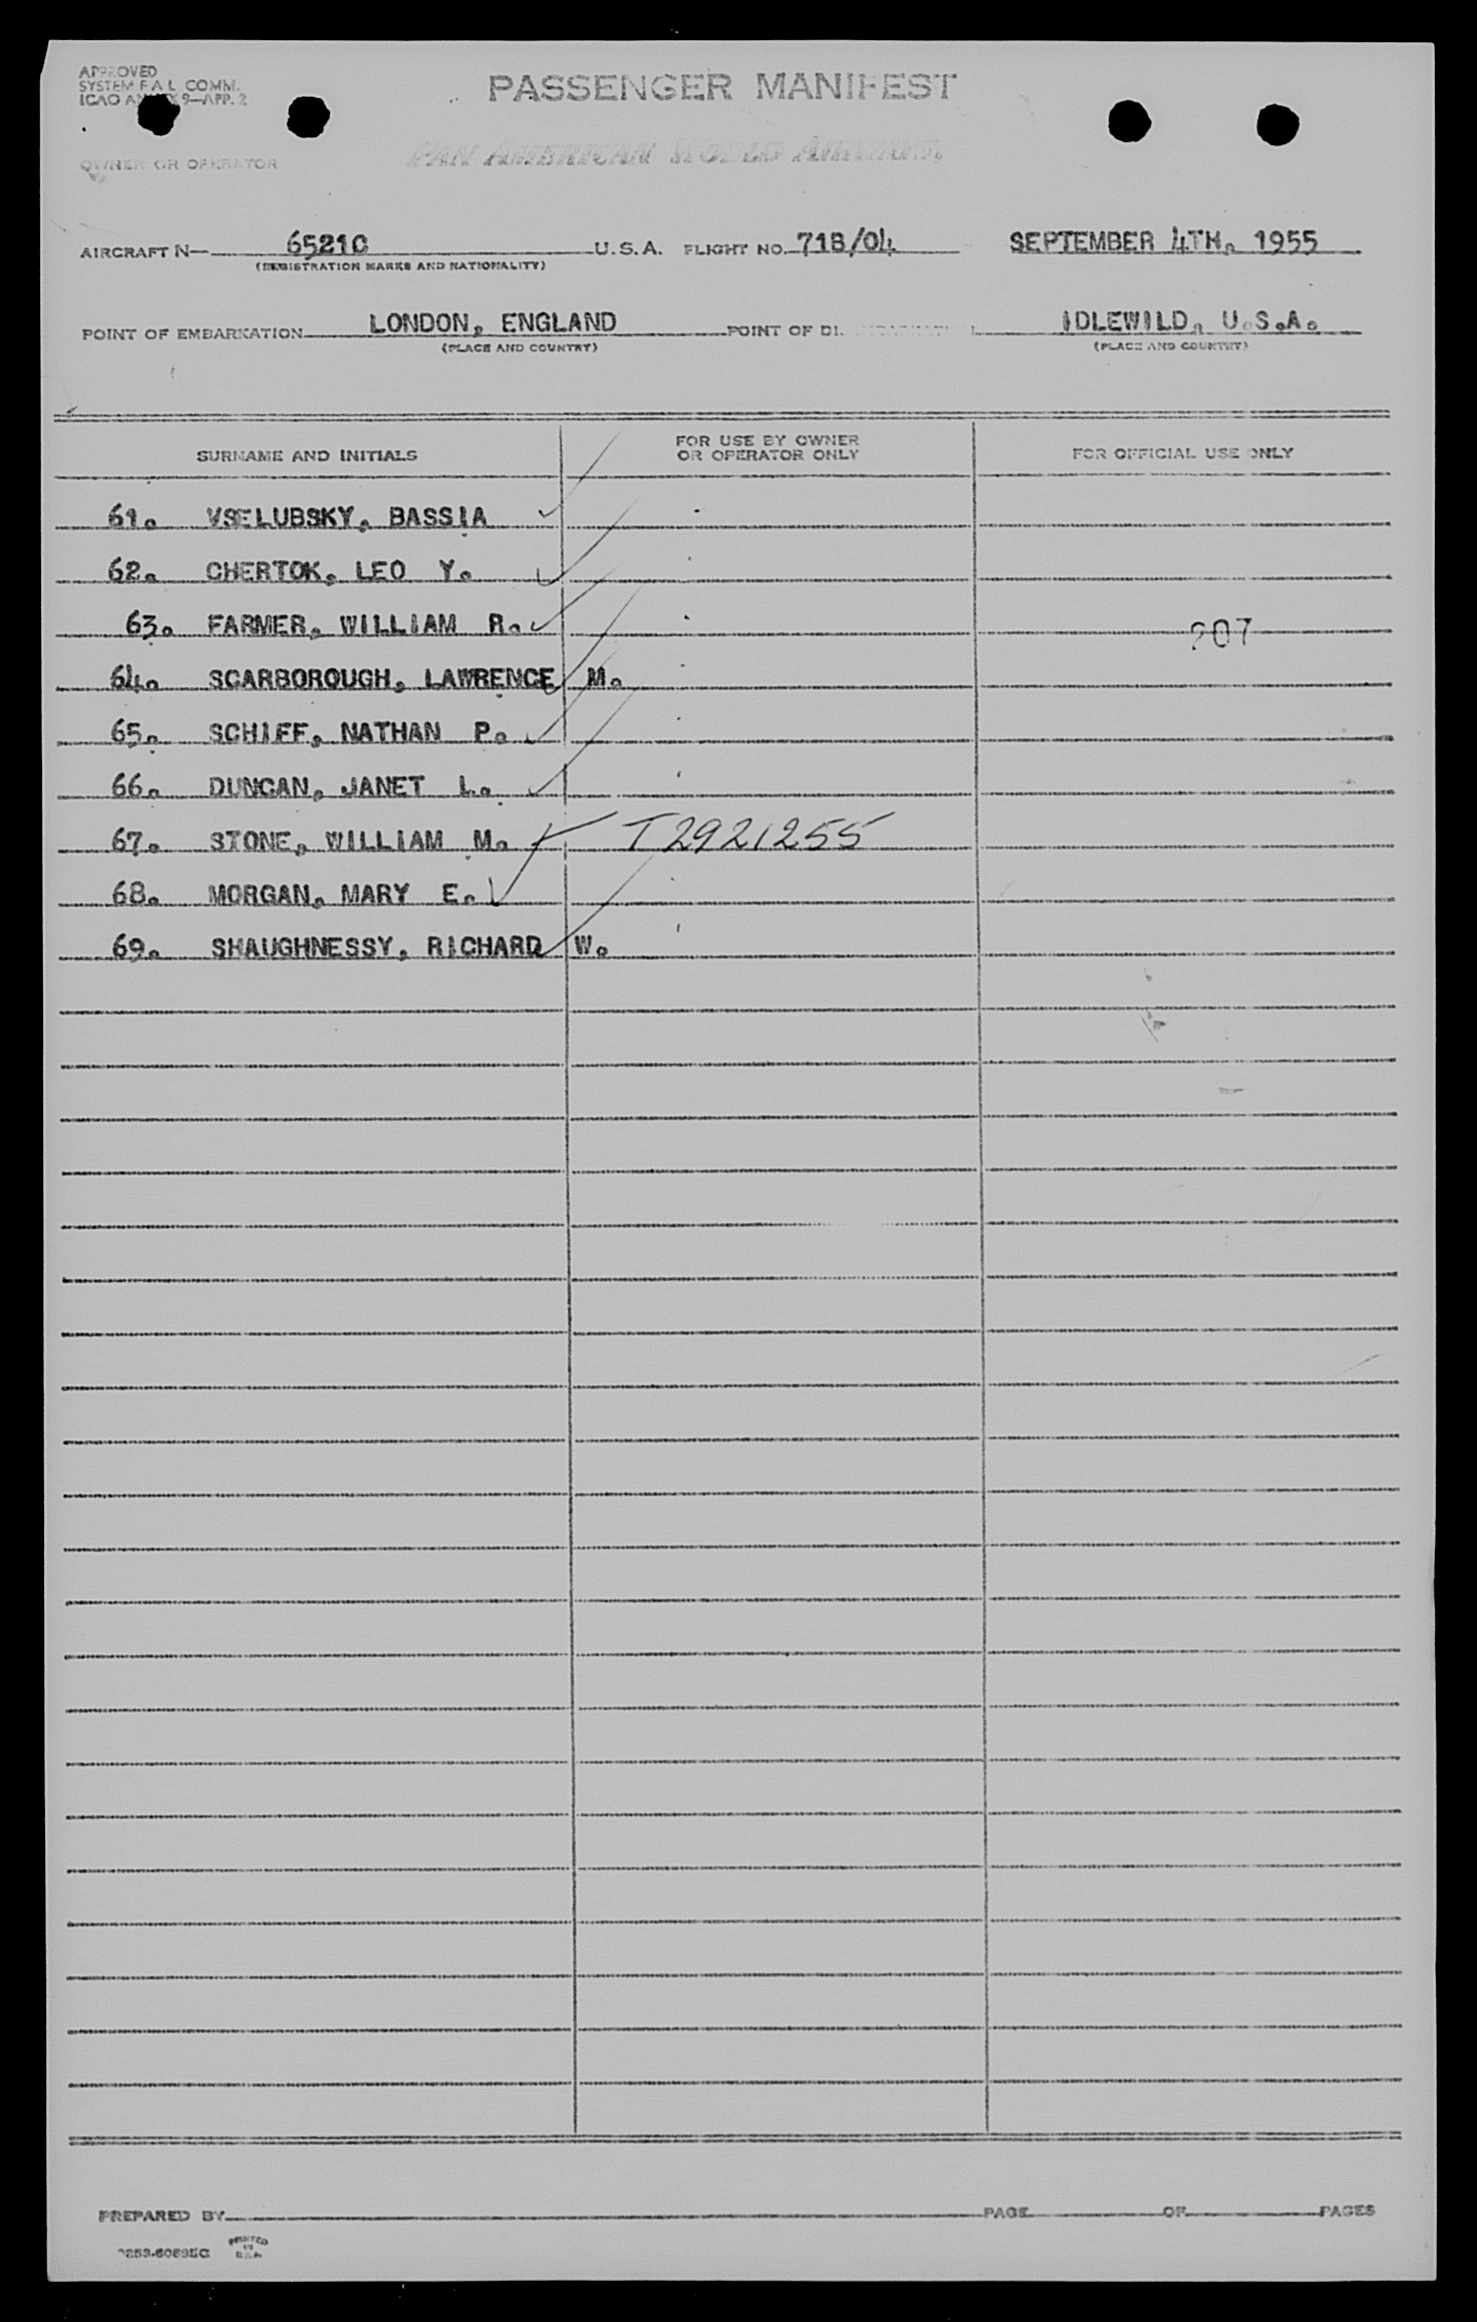 APPROVED
SYSTEM F A L COMM.
ICAO ANNEX 9—APP. 2
PASSENGER MANIFEST
OWNER OR OPERATOR
PAN AMERICAN WORLD AIRWAYS,
AIRCRAFT N— 6521C U.S.A. FLIGHT NO. 71B/04 SEPTEMBER 4TH. 1955
(REGISTRATION MARKS AND NATIONALITY)
POINT OF EMBARKATION LONDON, ENGLAND POINT OF DI IDLEWILD, U.S.A.
(PLACE AND COUNTRY) (PLACE AND COUNTRY)
SURNAME AND INITIALS FOR USE BY OWNER OR OPERATOR ONLY FOR OFFICIAL USE ONLY
61. VSELUBSKY, BASSIA
62. CHERTOK, LEO Y.
63. FARMER, WILLIAM R.
207
64. SCARBOROUGH, LAWRENCE M.
65. SCHIFF, NATHAN P.
66. DUNCAN, JANET L.
67. STONE, WILLIAM M. T2921255
68. MORGAN, MARY E.
69. SHAUGHNESSY, RICHARD W.
PREPARED BY PAGE OF PAGES
PRINTED IN U.S.A.